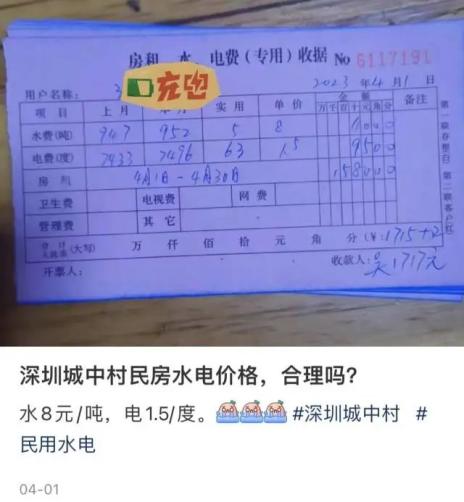 房租、水、电费(专用)收据 No 6117191
用户名称: 2023年4月1日
项目 上月 本月 实用 单价 金额 备注
万千百十元角分
水费(吨) 947 952 5 8 4000
电费(度) 7433 7496 63 1.5 9500
房租 4月1日-4月30日 158000
卫生费 电视费 网费
管理费 其它
合计人民币(大写) 万 仟 佰 拾 元 角 分(¥: 1715+2
开票人: 收款人: 吴 1717元
第一联存根(白) 第二联客户(红)
充电
深圳城中村民房水电价格，合理吗？
水8元/吨，电1.5/度。 #深圳城中村 #
民用水电
04-01